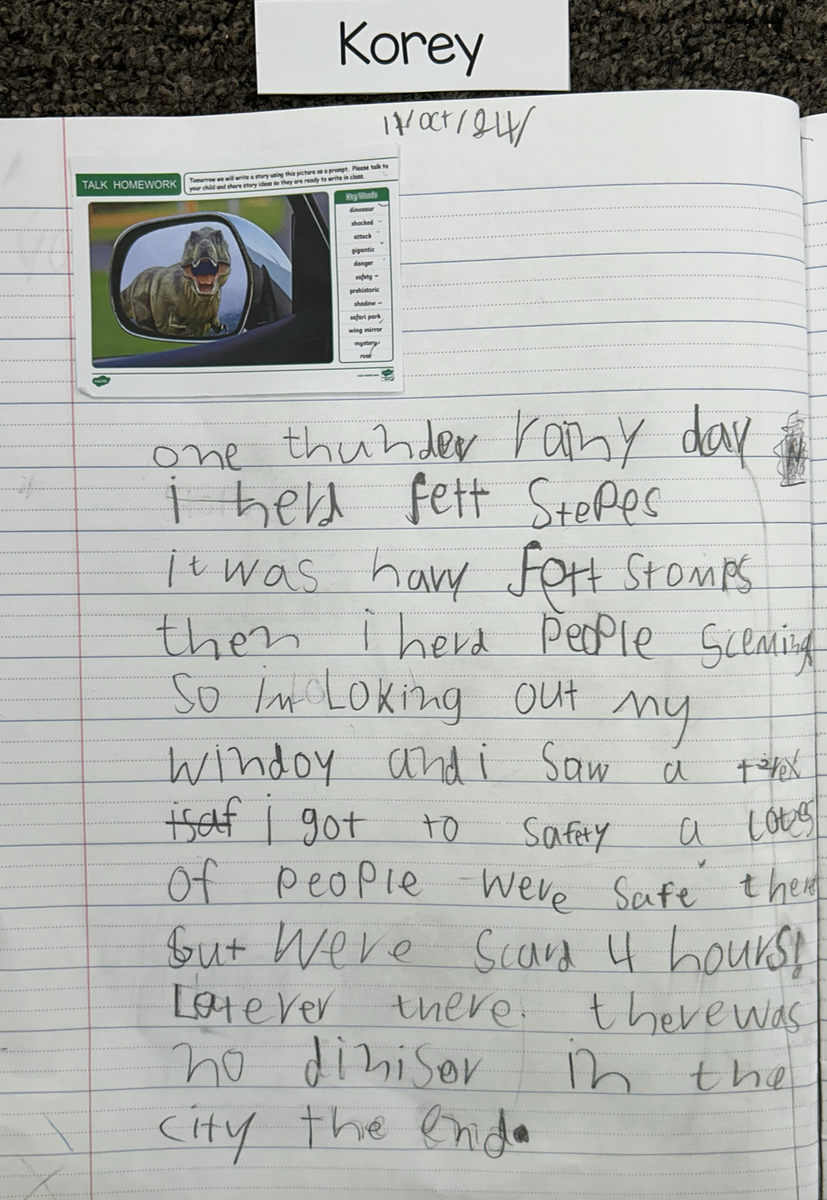 Korey
17/Oct/24/
TALK HOMEWORK
Tomorrow we will write a story using this picture as a prompt. Please talk to
your child and share story ideas so they are ready to write in class.
Key Words
dinosaur
shocked
attack
gigantic
danger
safety
prehistoric
shadow
safari park
wing mirror
mystery
roar
one thunder rainy day
i herd fett stepes
it was havy fett stomps
then i herd people sceming
so im loking out my
windoy and i saw a t-rex
isaf i got to safety a lotes
of people were safe there
but were scard 4 hours!
Laterer there. there was
no diniser in the
city the end.